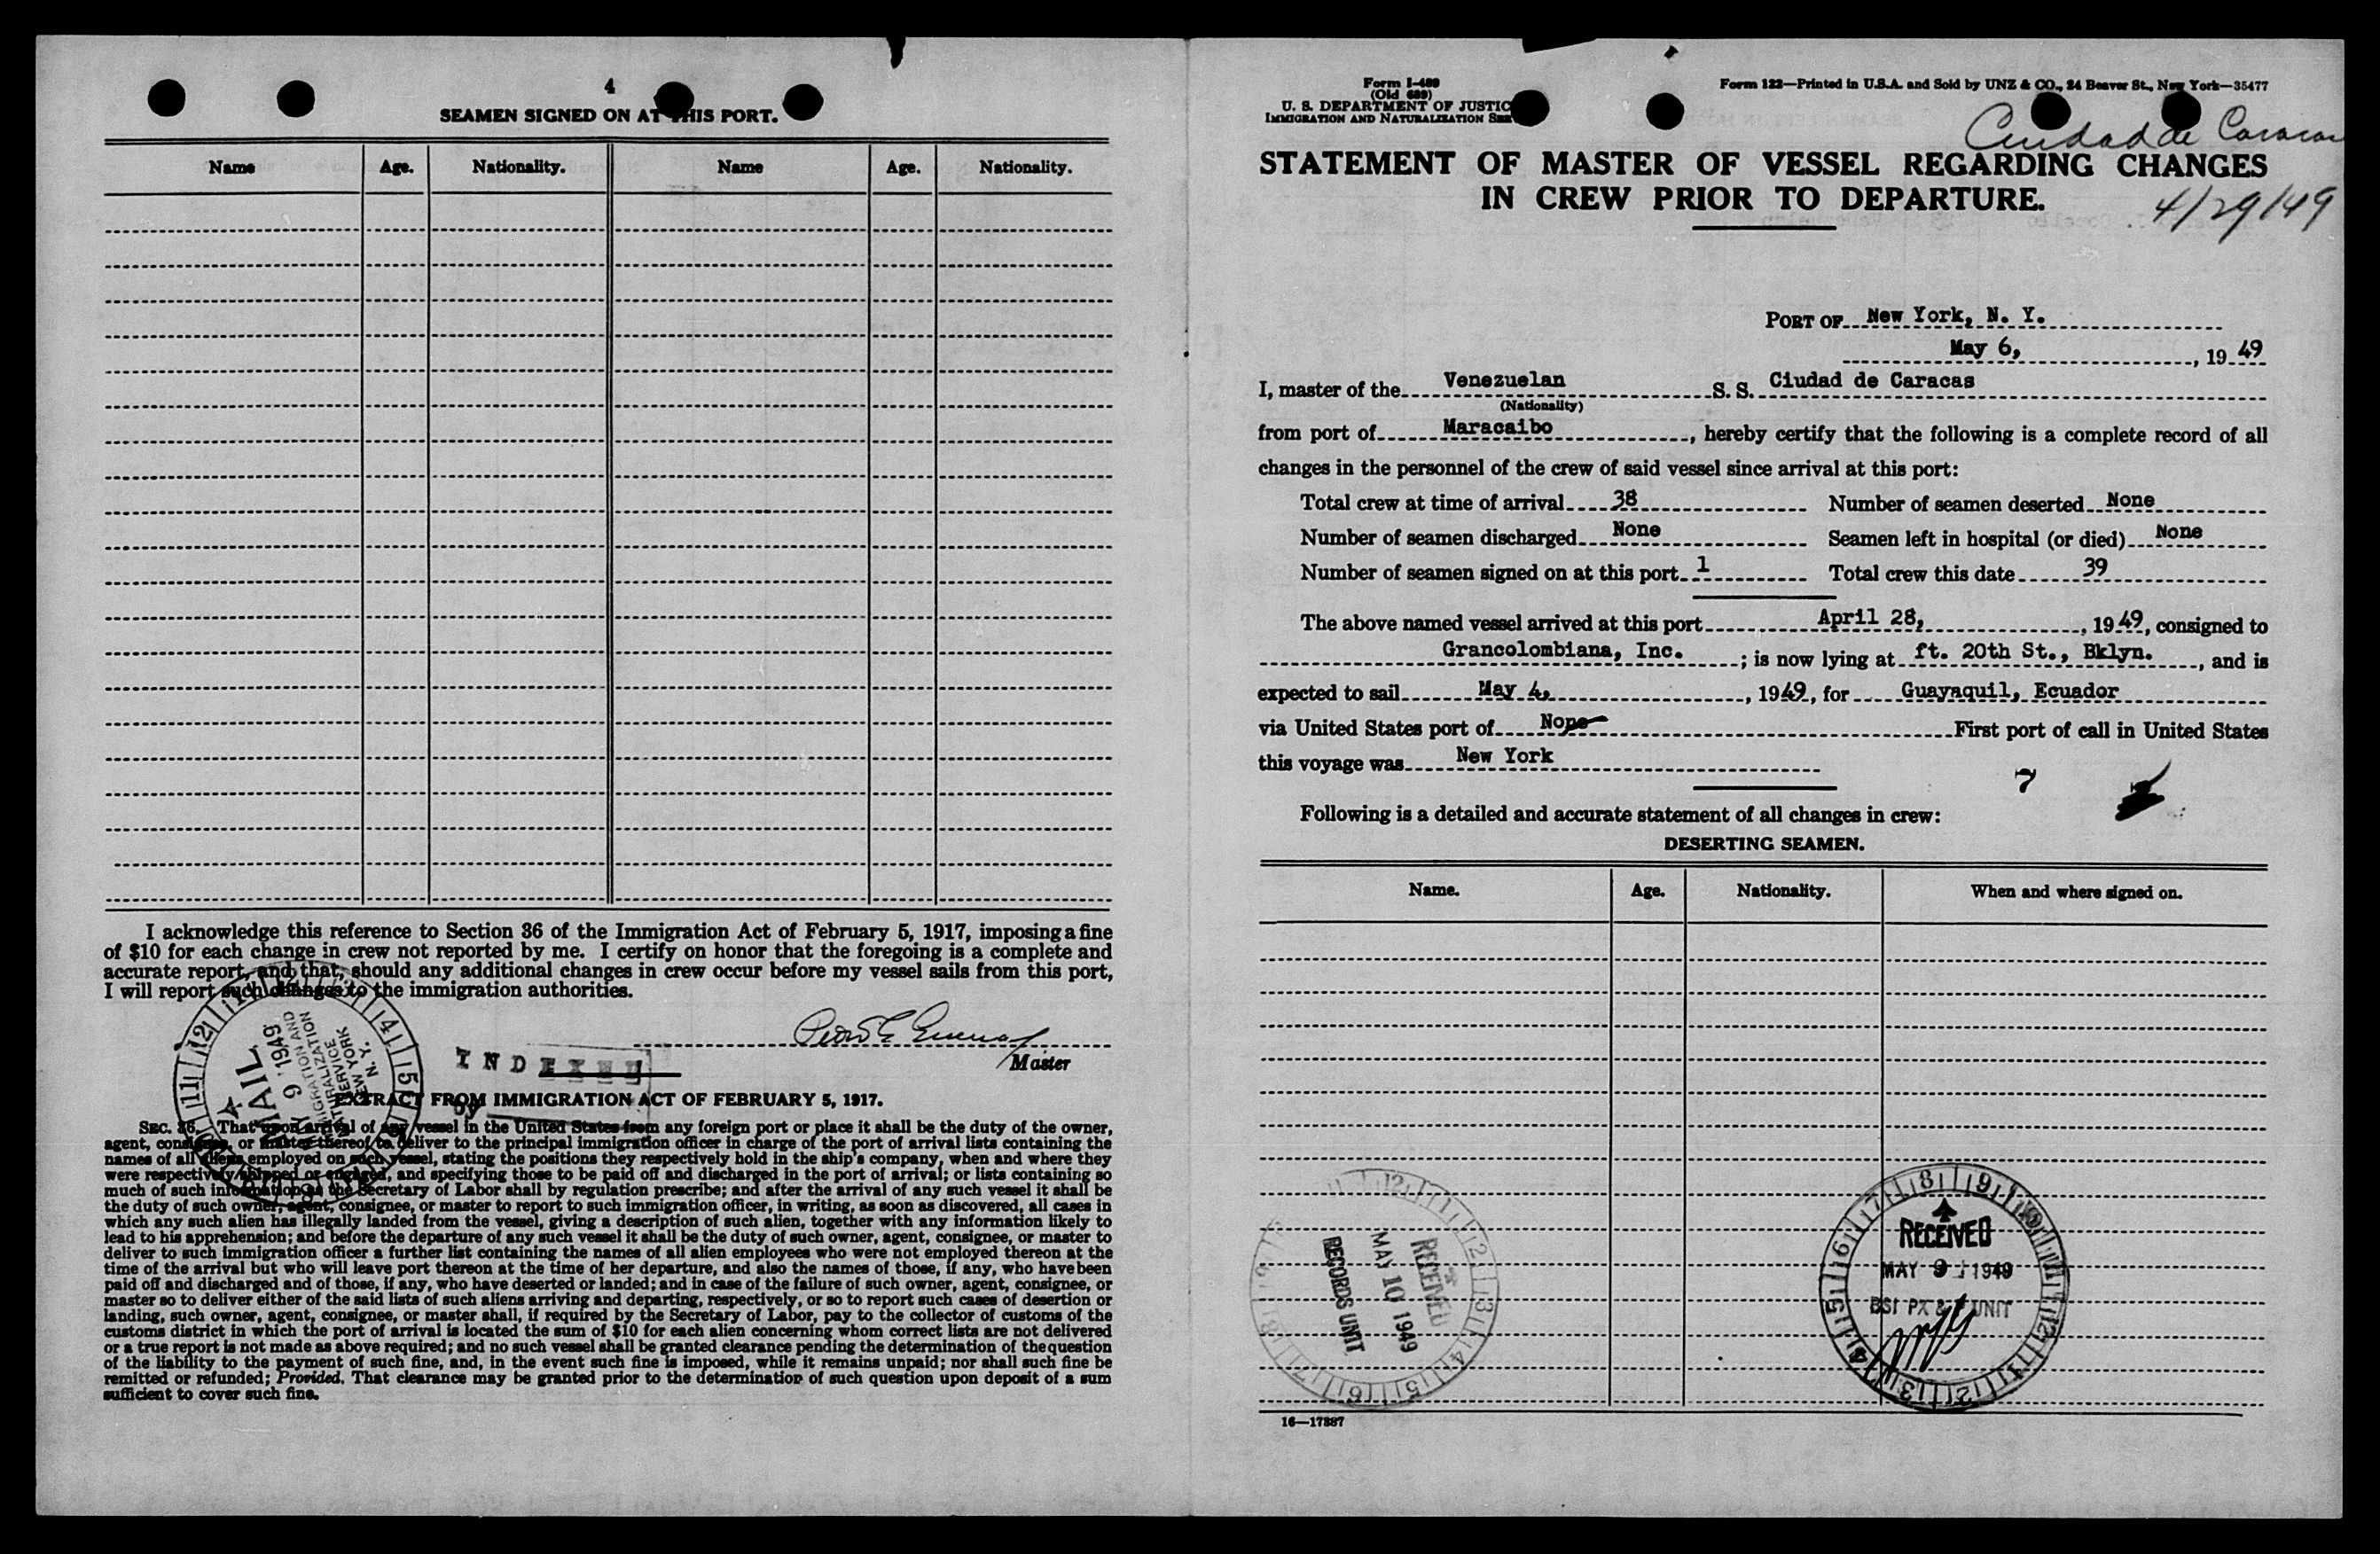 4
SEAMEN SIGNED ON AT THIS PORT.
Name Age. Nationality. Name Age. Nationality.
I acknowledge this reference to Section 36 of the Immigration Act of February 5, 1917, imposing a fine
of $10 for each change in crew not reported by me. I certify on honor that the foregoing is a complete and
accurate report, and that, should any additional changes in crew occur before my vessel sails from this port,
I will report such changes to the immigration authorities.
Master
INDEXED
MAIL
9 1949
IMMIGRATION AND
NATURALIZATION
SERVICE
NEW YORK
N. Y.
EXTRACT FROM IMMIGRATION ACT OF FEBRUARY 5, 1917.
by
SEC. 36. That upon arrival of any vessel in the United States from any foreign port or place it shall be the duty of the owner,
agent, consignee, or master thereof to deliver to the principal immigration officer in charge of the port of arrival lists containing the
names of all aliens employed on such vessel, stating the positions they respectively hold in the ship's company, when and where they
were respectively shipped or engaged, and specifying those to be paid off and discharged in the port of arrival; or lists containing so
much of such information as the Secretary of Labor shall by regulation prescribe; and after the arrival of any such vessel it shall be
the duty of such owner, agent, consignee, or master to report to such immigration officer, in writing, as soon as discovered, all cases in
which any such alien has illegally landed from the vessel, giving a description of such alien, together with any information likely to
lead to his apprehension; and before the departure of any such vessel it shall be the duty of such owner, agent, consignee, or master to
deliver to such immigration officer a further list containing the names of all alien employees who were not employed thereon at the
time of the arrival but who will leave port thereon at the time of her departure, and also the names of those, if any, who have been
paid off and discharged and of those, if any, who have deserted or landed; and in case of the failure of such owner, agent, consignee, or
master so to deliver either of the said lists of such aliens arriving and departing, respectively, or so to report such cases of desertion or
landing, such owner, agent, consignee, or master shall, if required by the Secretary of Labor, pay to the collector of customs of the
customs district in which the port of arrival is located the sum of $10 for each alien concerning whom correct lists are not delivered
or a true report is not made as above required; and no such vessel shall be granted clearance pending the determination of the question
of the liability to the payment of such fine, and, in the event such fine is imposed, while it remains unpaid; nor shall such fine be
remitted or refunded; Provided, That clearance may be granted prior to the determination of such question upon deposit of a sum
sufficient to cover such fine.
Form I-489
(Old 689)
U. S. DEPARTMENT OF JUSTIC
IMMIGRATION AND NATURALIZATION SER
Form 122—Printed in U.S.A. and Sold by UNZ & CO., 24 Beaver St., New York—35477
Ciudad de Caracas
STATEMENT OF MASTER OF VESSEL REGARDING CHANGES
IN CREW PRIOR TO DEPARTURE.
4/29/49
PORT OF New York, N. Y.
May 6, , 19 49
I, master of the Venezuelan S. S. Ciudad de Caracas
(Nationality)
from port of Maracaibo , hereby certify that the following is a complete record of all
changes in the personnel of the crew of said vessel since arrival at this port:
Total crew at time of arrival 38 Number of seamen deserted None
Number of seamen discharged None Seamen left in hospital (or died) None
Number of seamen signed on at this port 1 Total crew this date 39
The above named vessel arrived at this port April 28, , 1949, consigned to
Grancolombiana, Inc. ; is now lying at ft. 20th St., Bklyn. , and is
expected to sail May 4, , 1949, for Guayaquil, Ecuador
via United States port of None First port of call in United States
this voyage was New York
7
Following is a detailed and accurate statement of all changes in crew:
DESERTING SEAMEN.
Name. Age. Nationality. When and where signed on.
RECEIVED
MAY 10 1949
RECORDS UNIT
RECEIVED
MAY 9 1949
16—17887